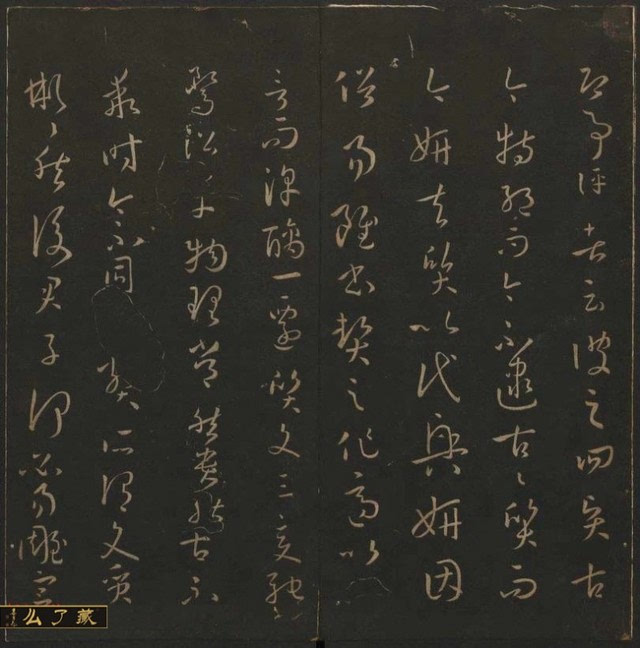 即事評者云彼之四賢古
今特絕而今不逮古〻質而
今妍夫質以代興妍因
俗易雖書契之作適以
言而淳醨一遷質文三變馳
騖沿革物理常然貴能古不
乖時今不同弊所謂文質
彬〻然後君子何必易雕宮
藏了么